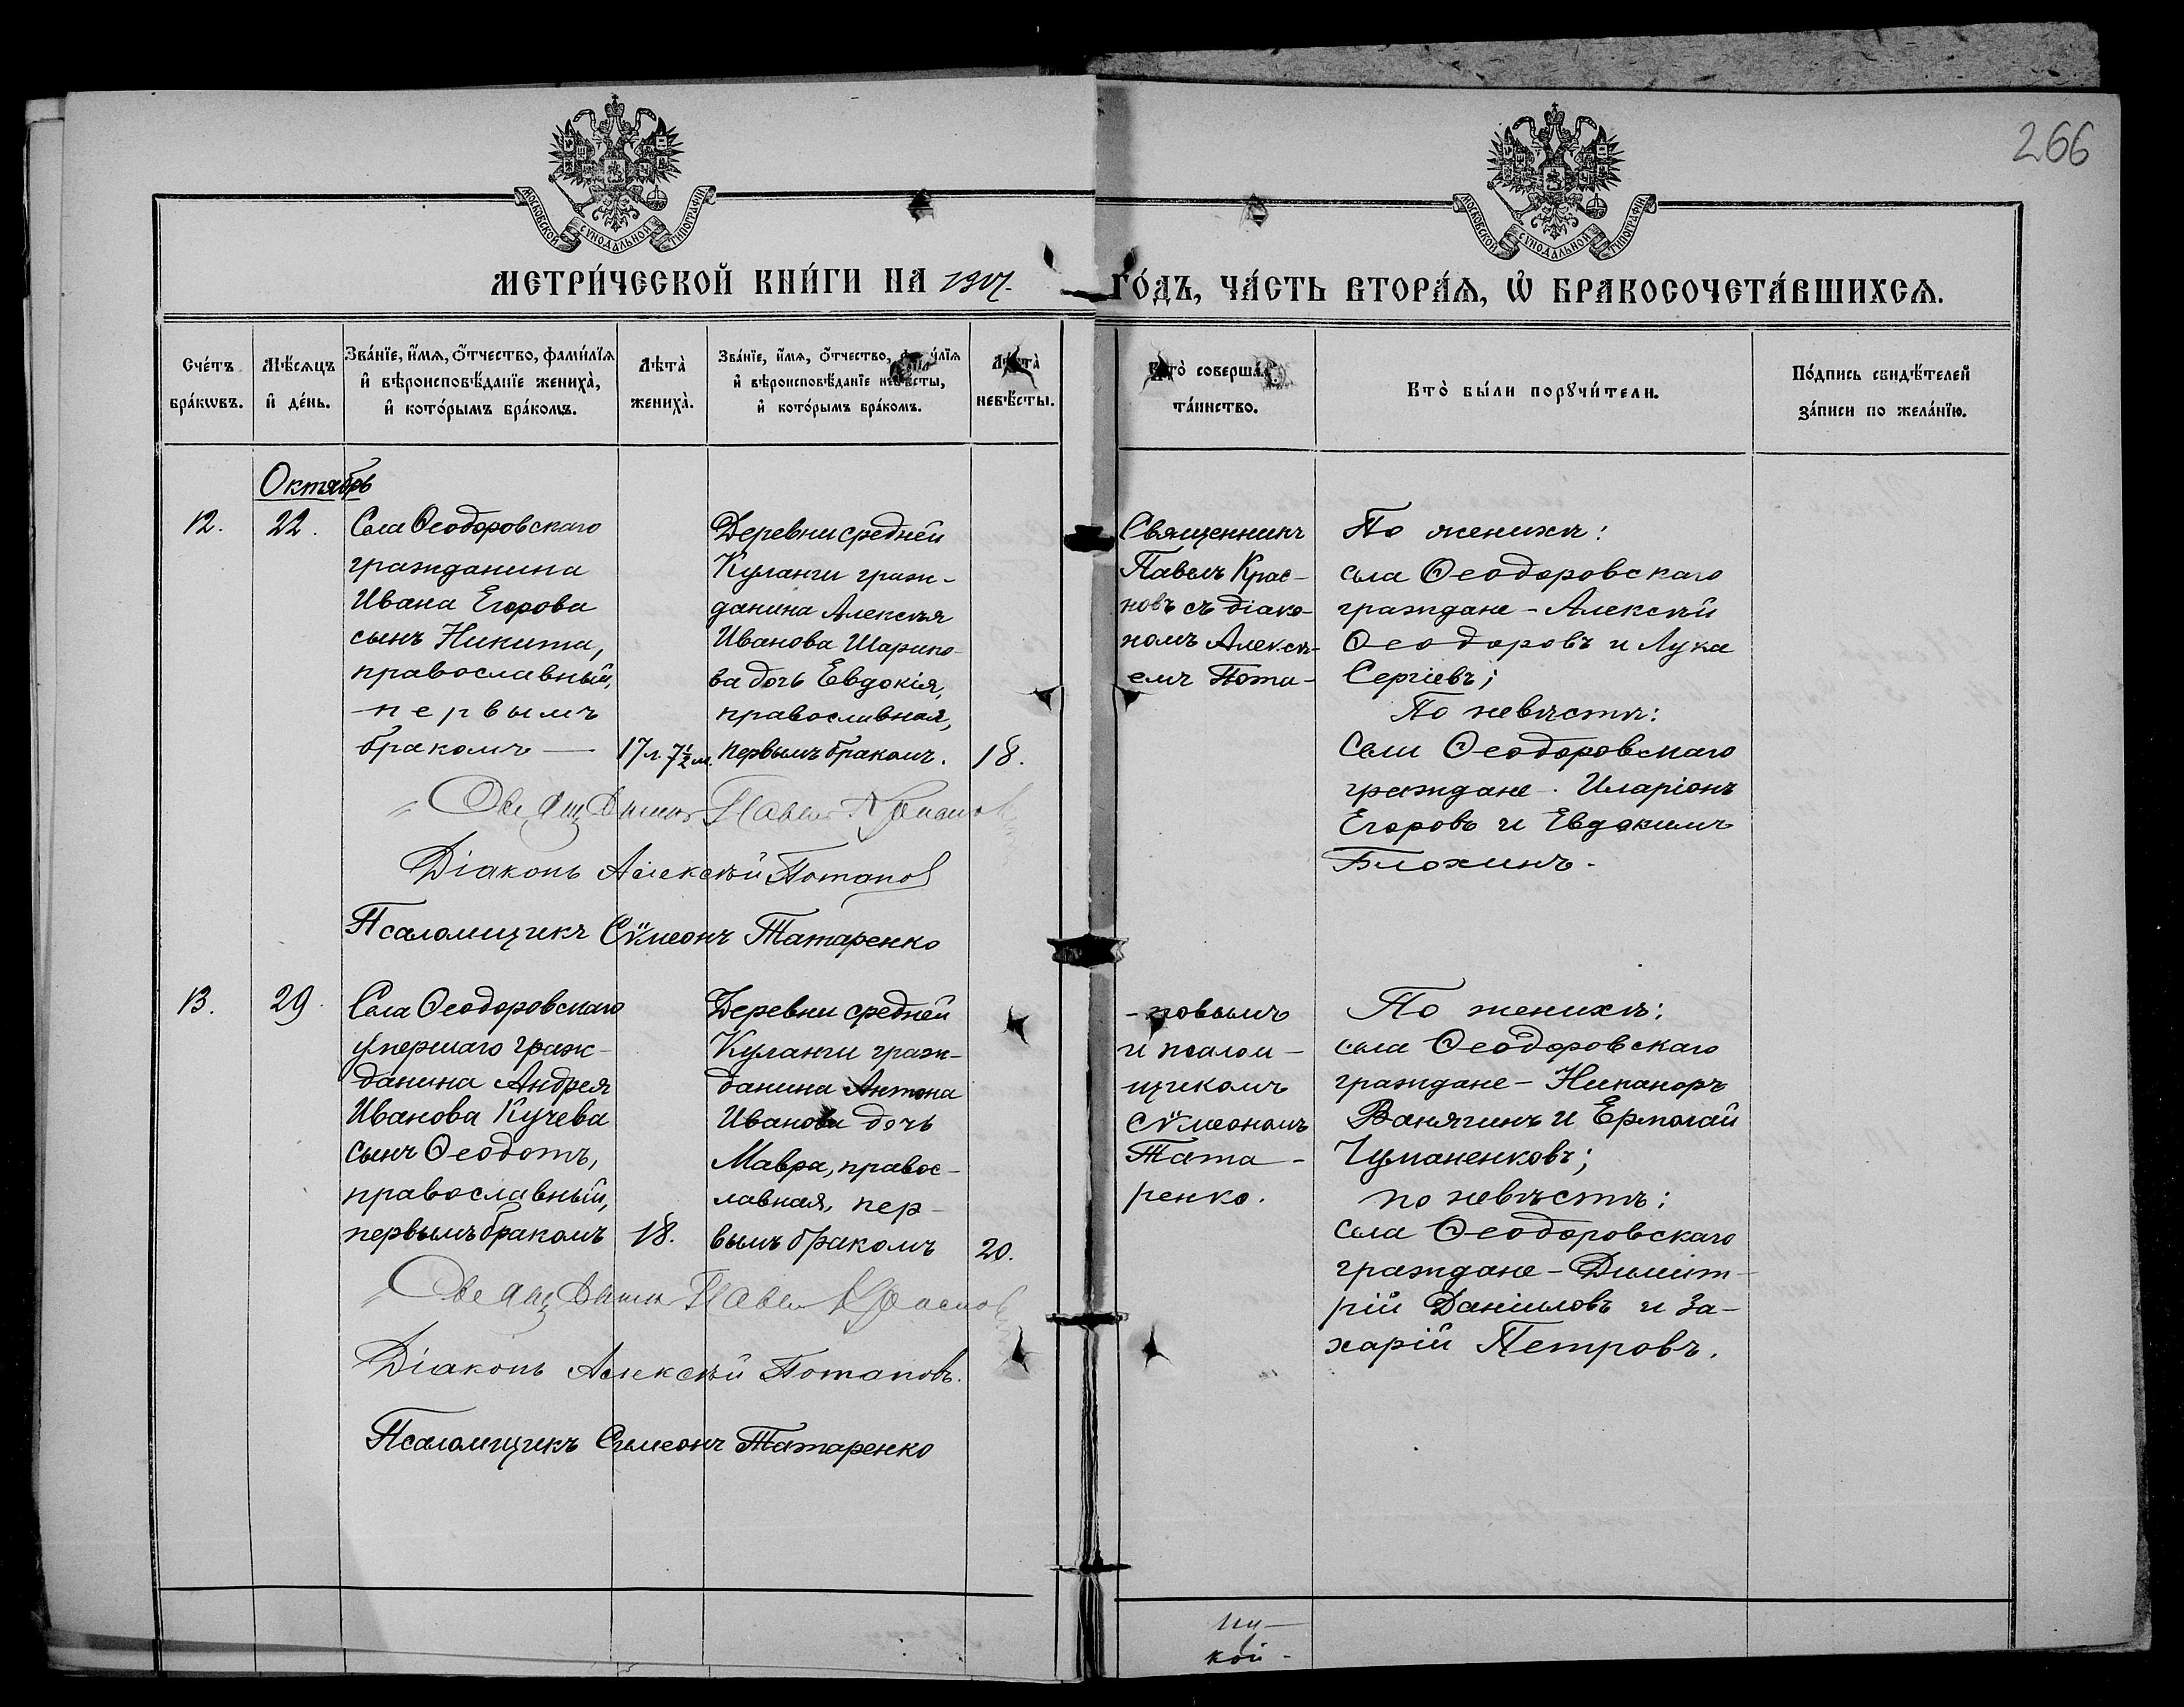 266
МОСКОВСКОЙ СѴНОДАЛЬНОЙ ТИПОГРАФІИ
МОСКОВСКОЙ СѴНОДАЛЬНОЙ ТИПОГРАФІИ
МЕТРИ́ЧЕСКОЙ КНИ́ГИ НА 1917.
ГО́ДЪ, ЧА́СТЬ ВТОРА́Ѧ, Ѡ҆ БРАКОСОЧЕТА́ВШИХСѦ.
Сче́тъ
бра́кѡвъ.
Мѣ́сѧцъ
и҆ де́нь.
Зва́нїе, и҆́мѧ, ѻ҆́тчество, фами́лїѧ
и҆ вѣроисповѣ́данїе жениха̀,
и҆ кото́рымъ бра́комъ.
Лѣта̀
жениха̀.
Зва́нїе, и҆́мѧ, ѻ҆́тчество, фами́лїѧ
и҆ вѣроисповѣ́данїе невѣ́сты,
и҆ кото́рымъ бра́комъ.
Лѣта̀
невѣ́сты.
Кто̀ соверша́лъ
та́инство.
Кто̀ бы́ли порꙋчи́тели.
По́дпись свидѣ́телей
за́писи по жела́нїю.
Октябрь
12.
22.
Села Ѳеодоровскаго
гражданина
Ивана Егорова
сынъ Никита,
православный,
первымъ
бракомъ —
17 л. 7½ м.
Деревни средней
Куланги граж-
данина Алексѣя
Иванова Шарипо-
ва дочь Евдокія,
православная,
первымъ бракомъ.
18.
Священникъ
Павелъ Крас-
новъ съ діако-
номъ Алексѣ-
емъ Пота-
По женихѣ:
села Ѳеодоровскаго
граждане - Алексѣй
Ѳеодоровъ и Лука
Сергіевъ;
По невѣстѣ:
села Ѳеодоровскаго
граждане - Иларіонъ
Егоровъ и Евдокимъ
Блохинъ.
Священникъ Павелъ Краснов
Діаконъ Алексѣй Потапов
Псаломщикъ Сѷмеонъ Татаренко
13.
29.
Села Ѳеодоровскаго
умершаго граж-
данина Андрея
Иванова Кучева
сынъ Ѳеодотъ,
православный,
первымъ бракомъ
18.
Деревни средней
Куланги граж-
данина Антона
Иванова дочь
Мавра, правос-
лавная, пер-
вымъ бракомъ
20.
-повымъ
и псалом-
щикомъ
Сѷмеономъ
Тата-
ренко.
По женихѣ:
села Ѳеодоровскаго
граждане - Никаноръ
Ванягинъ и Ермолай
Чуманенковъ;
по невѣстѣ:
села Ѳеодоровскаго
граждане - Димит-
рій Даніиловъ и За-
харій Петровъ.
Священникъ Павелъ Краснов
Діаконъ Алексѣй Потаповъ.
Псаломщикъ Симеонъ Татаренко
кой-